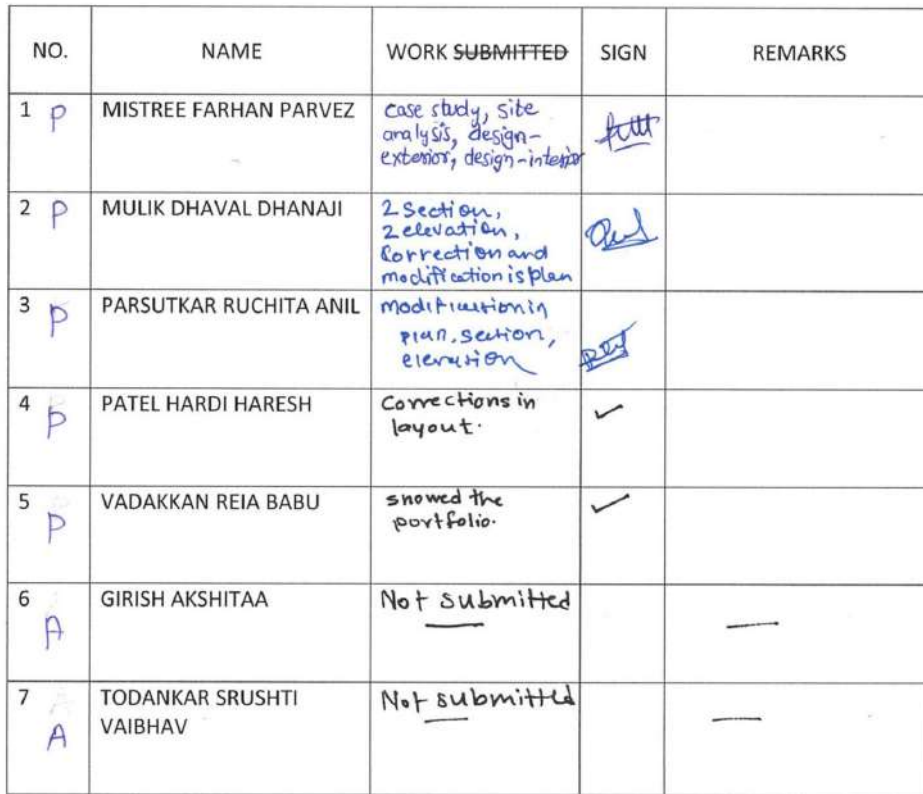 NO. NAME WORK SUBMITTED SIGN REMARKS
1 P MISTREE FARHAN PARVEZ case study, site
analysis, design-
exterior, design-interior
2 P MULIK DHAVAL DHANAJI 2 Section,
2 elevation,
Correction and
modification is plan
3 P PARSUTKAR RUCHITA ANIL modification in
plan, section,
elevation
4 P PATEL HARDI HARESH Corrections in
layout.
5 P VADAKKAN REIA BABU showed the
portfolio.
6 A GIRISH AKSHITAA Not submitted
7 A TODANKAR SRUSHTI Not submitted
VAIBHAV